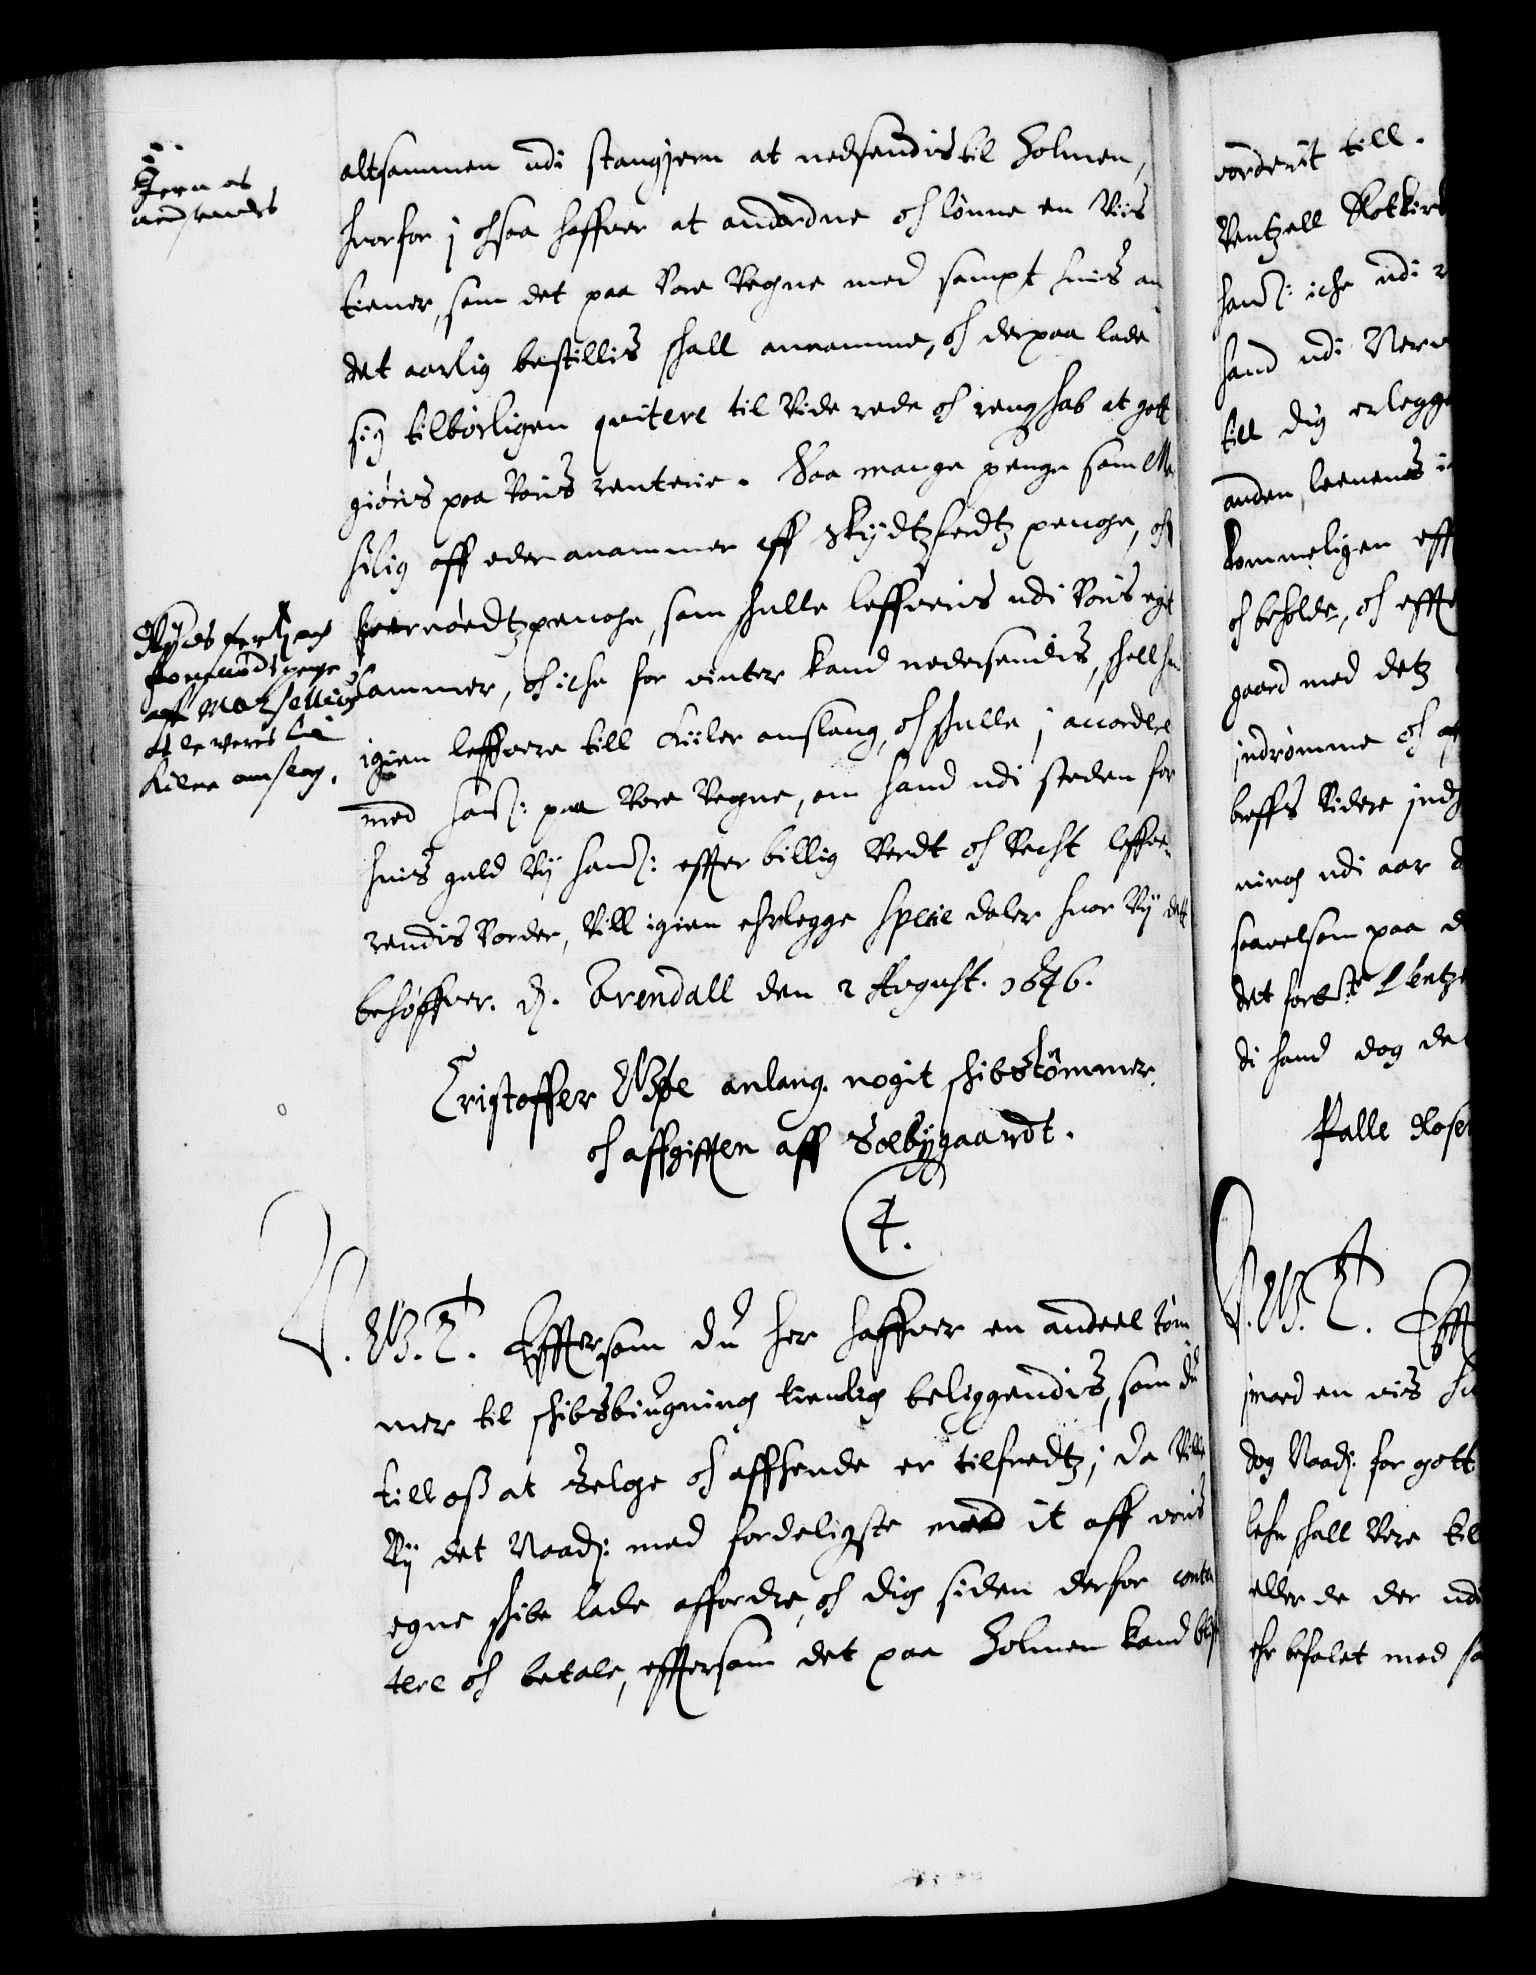 Jern at
nedsendes
altsammen udi stangjern at nedsendis til Holmen,
huorfor j ochsaa haffuer at anordne och lønne en Viis
tiener, som det paa Vore Vegne med sampt huis an
det aarlig bestillis skall annamme, och derpaa lade
sig tilbørligen qvitere til Vide rede och rengskab at gott
giøris paa Voris renterie. Saa mange penge som Ma
silig aff eder anammer aff Skydtzferdtz penge, och
foernødtzpenge, som skulle leffueris udi Voris egit
Kammer, och iche for vinter kand nedersendis, skall hand
igien leffuere till Kiiler omslaug, och skulle j accordere
med hand: paa Vore Vegne, om hand udi steden for
huis guld Vy hand: effter billig Verdt och Vecht leffue-
rendis Vorder, Vill igien erlegge specie daler huor Vy dett
behøffuer. D. Arendall den 2 August. 1646.
Skyds ferdz och
fornødts penge
aff Marselius
at leveris til
Kiler omslag.
Cristoffer Urne anlang. nogit skibstømmer
och affgifften aff Sæbygaardt.
4.
V. G. T. Efftersom du her haffuer en andeel tøm
mer til skibsbiugning tienlig beliggendis, som du
till oss at selge och affhende er tilfredtz; da Ville
Vy det Naad: med forderligste med it aff voris
egne skibe lade affordre, och dig siden derfor conten
tere och betale, efftersom det paa Holmen kand
vorderit till.
Ventzell Rotkirk
hand: iche udi
hand udi Ner
till dig erlegge
anden, leenens
kommeligen eff
och beholde, och effte
gaard med detz
indrømme och
breffs Videre ind
ning udi aar
saauelsom paa
det forste Ventze
di hand dog de
Palle Rosen
V. G. T. Efft
imod en vis
dog Naad: for gott
lehn skall Vere til
eller de der udi
er befalet med